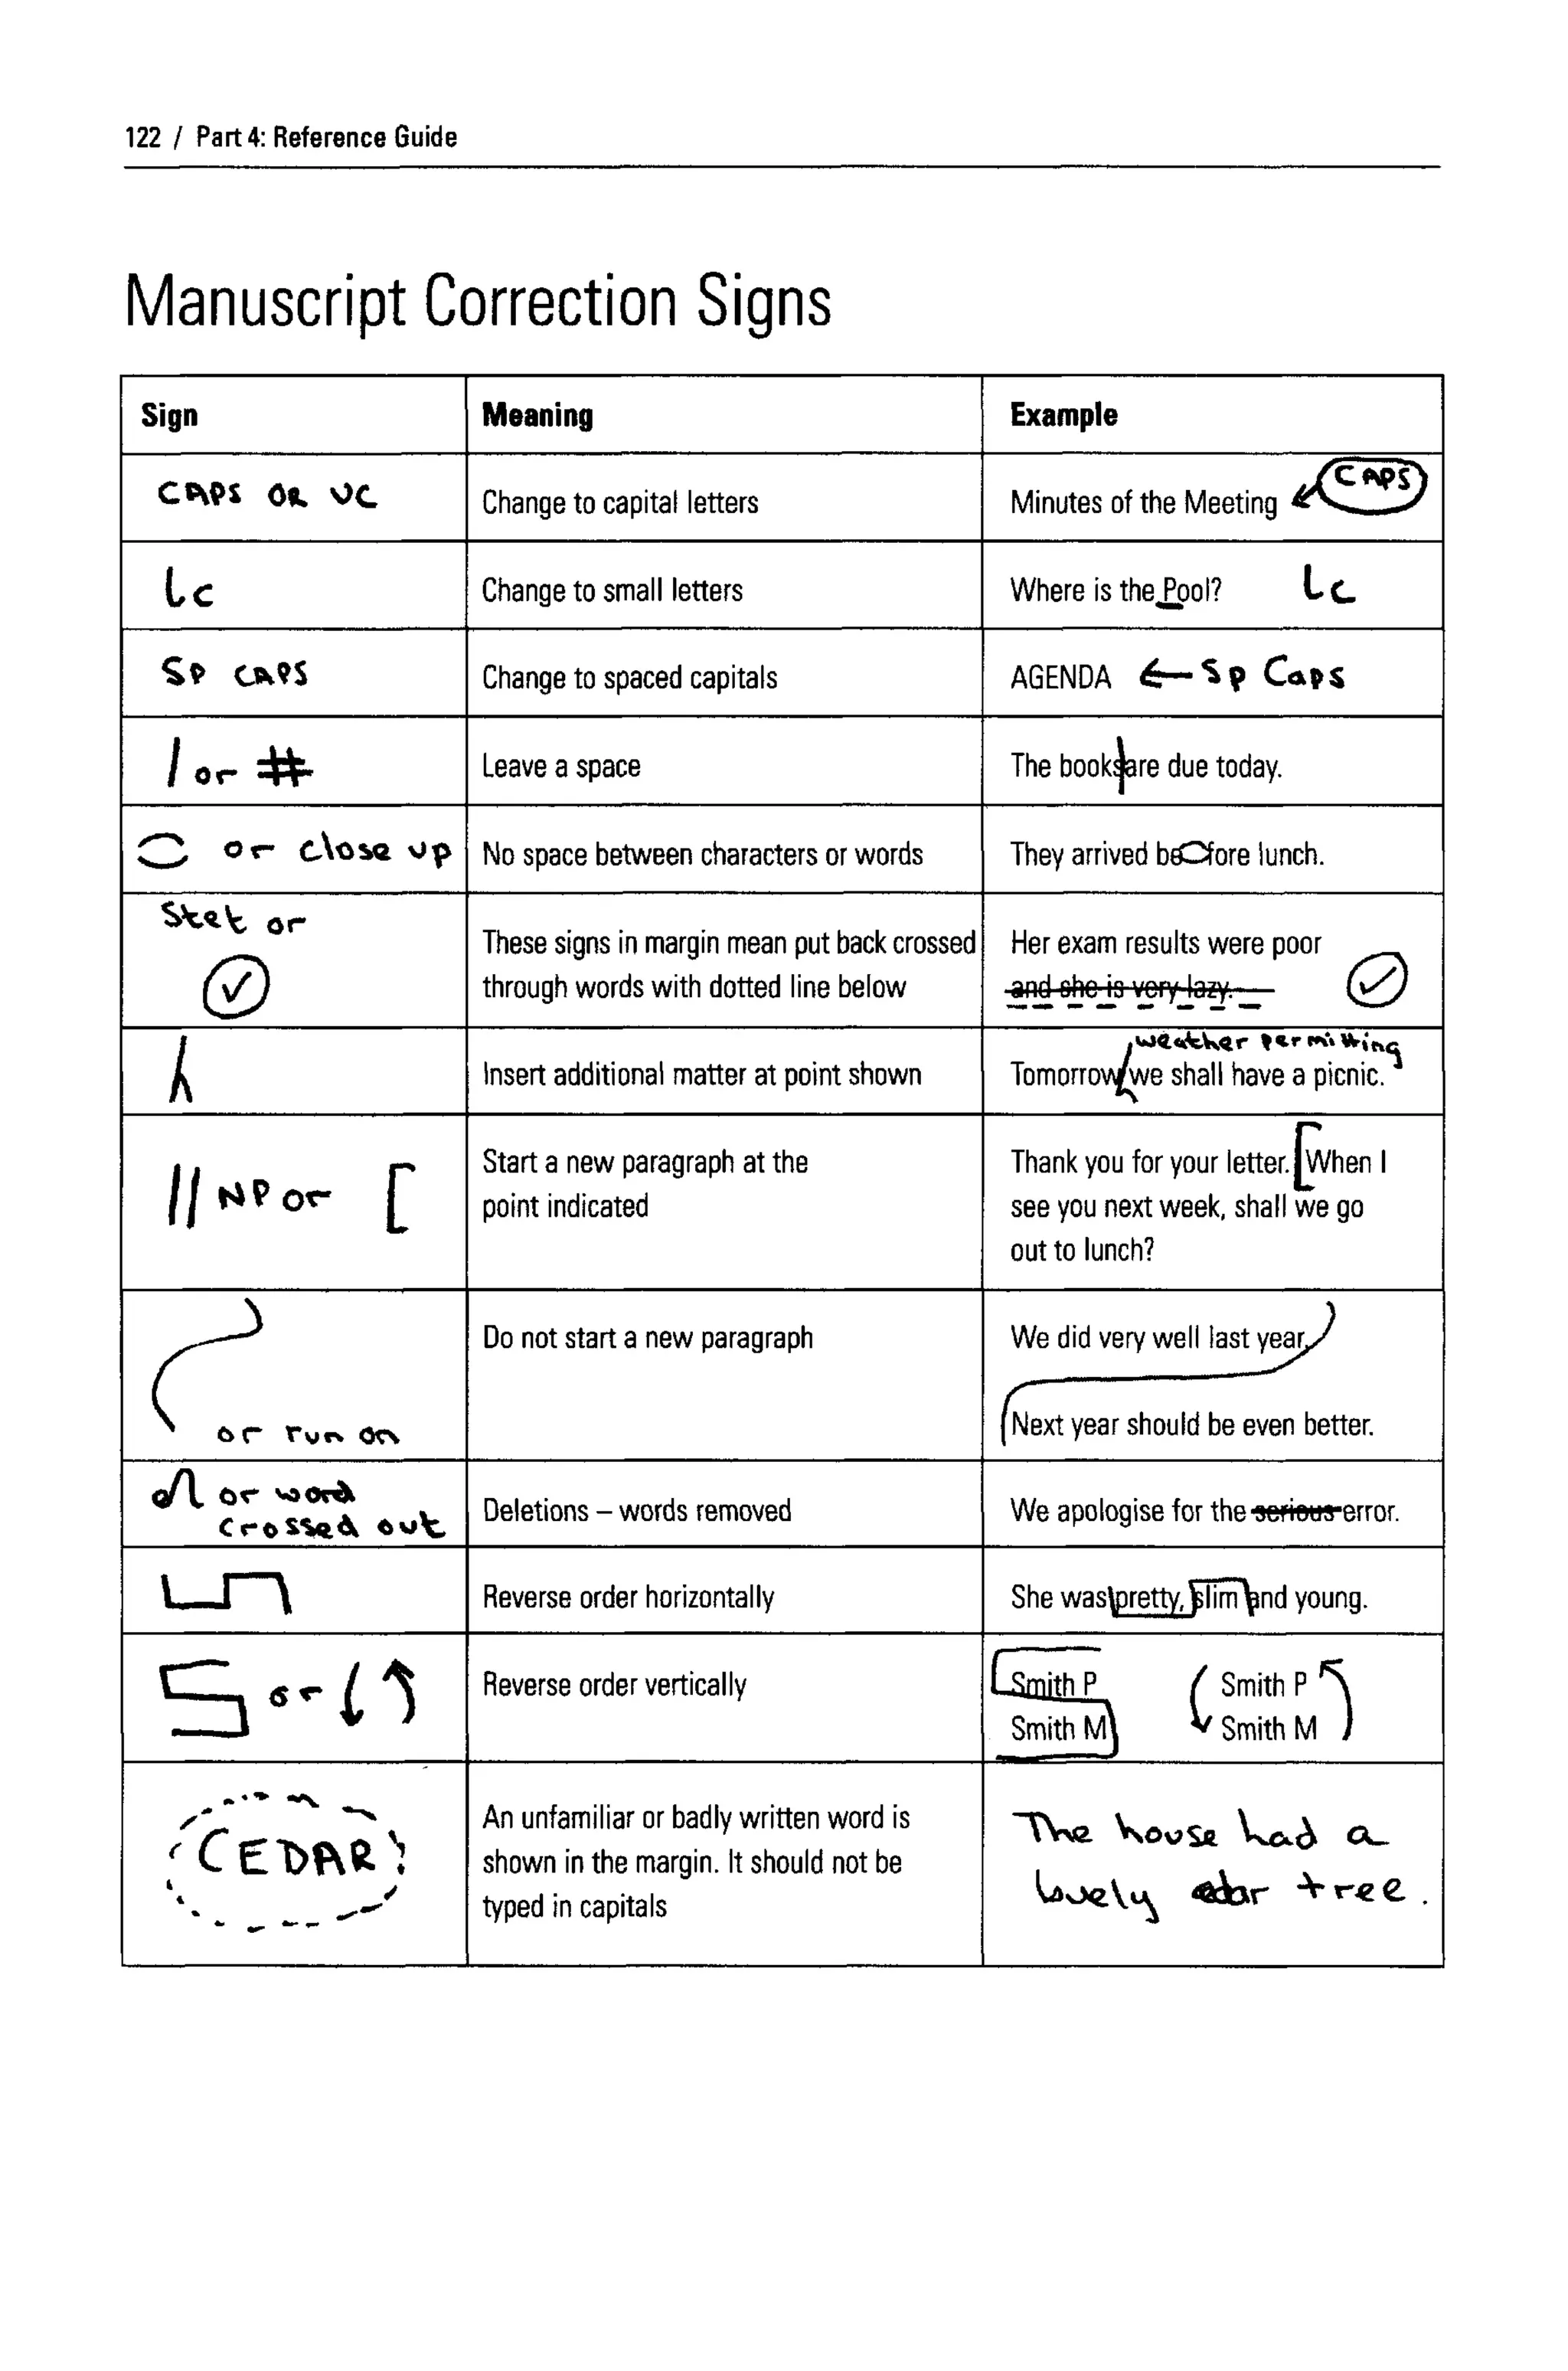 122 / Part 4: Reference Guide
Manuscript Correction Signs
Sign Meaning Example
CAPS OR UC Change to capital letters Minutes of the Meeting CAPS
lc Change to small letters Where is the Pool? lc
SP CAPS Change to spaced capitals AGENDA ← Sp Caps
/ or # Leave a space The books|are due today.
or close up No space between characters or words They arrived be fore lunch.
Stet or
✓
These signs in margin mean put back crossed
through words with dotted line below
Her exam results were poor
and she is very lazy. ✓
Insert additional matter at point shown
weather permitting
Tomorrow we shall have a picnic.
// NP or [
Start a new paragraph at the
point indicated
Thank you for your letter. [When I
see you next week, shall we go
out to lunch?
or run on
Do not start a new paragraph
We did very well last year.
Next year should be even better.
or word
crossed out
Deletions – words removed
We apologise for the serious error.
Reverse order horizontally
She was pretty, slim and young.
or ↓ ↑
Reverse order vertically
Smith P Smith P
Smith M Smith M
CEDAR
An unfamiliar or badly written word is
shown in the margin. It should not be
typed in capitals
The house had a
lovely cedar tree.